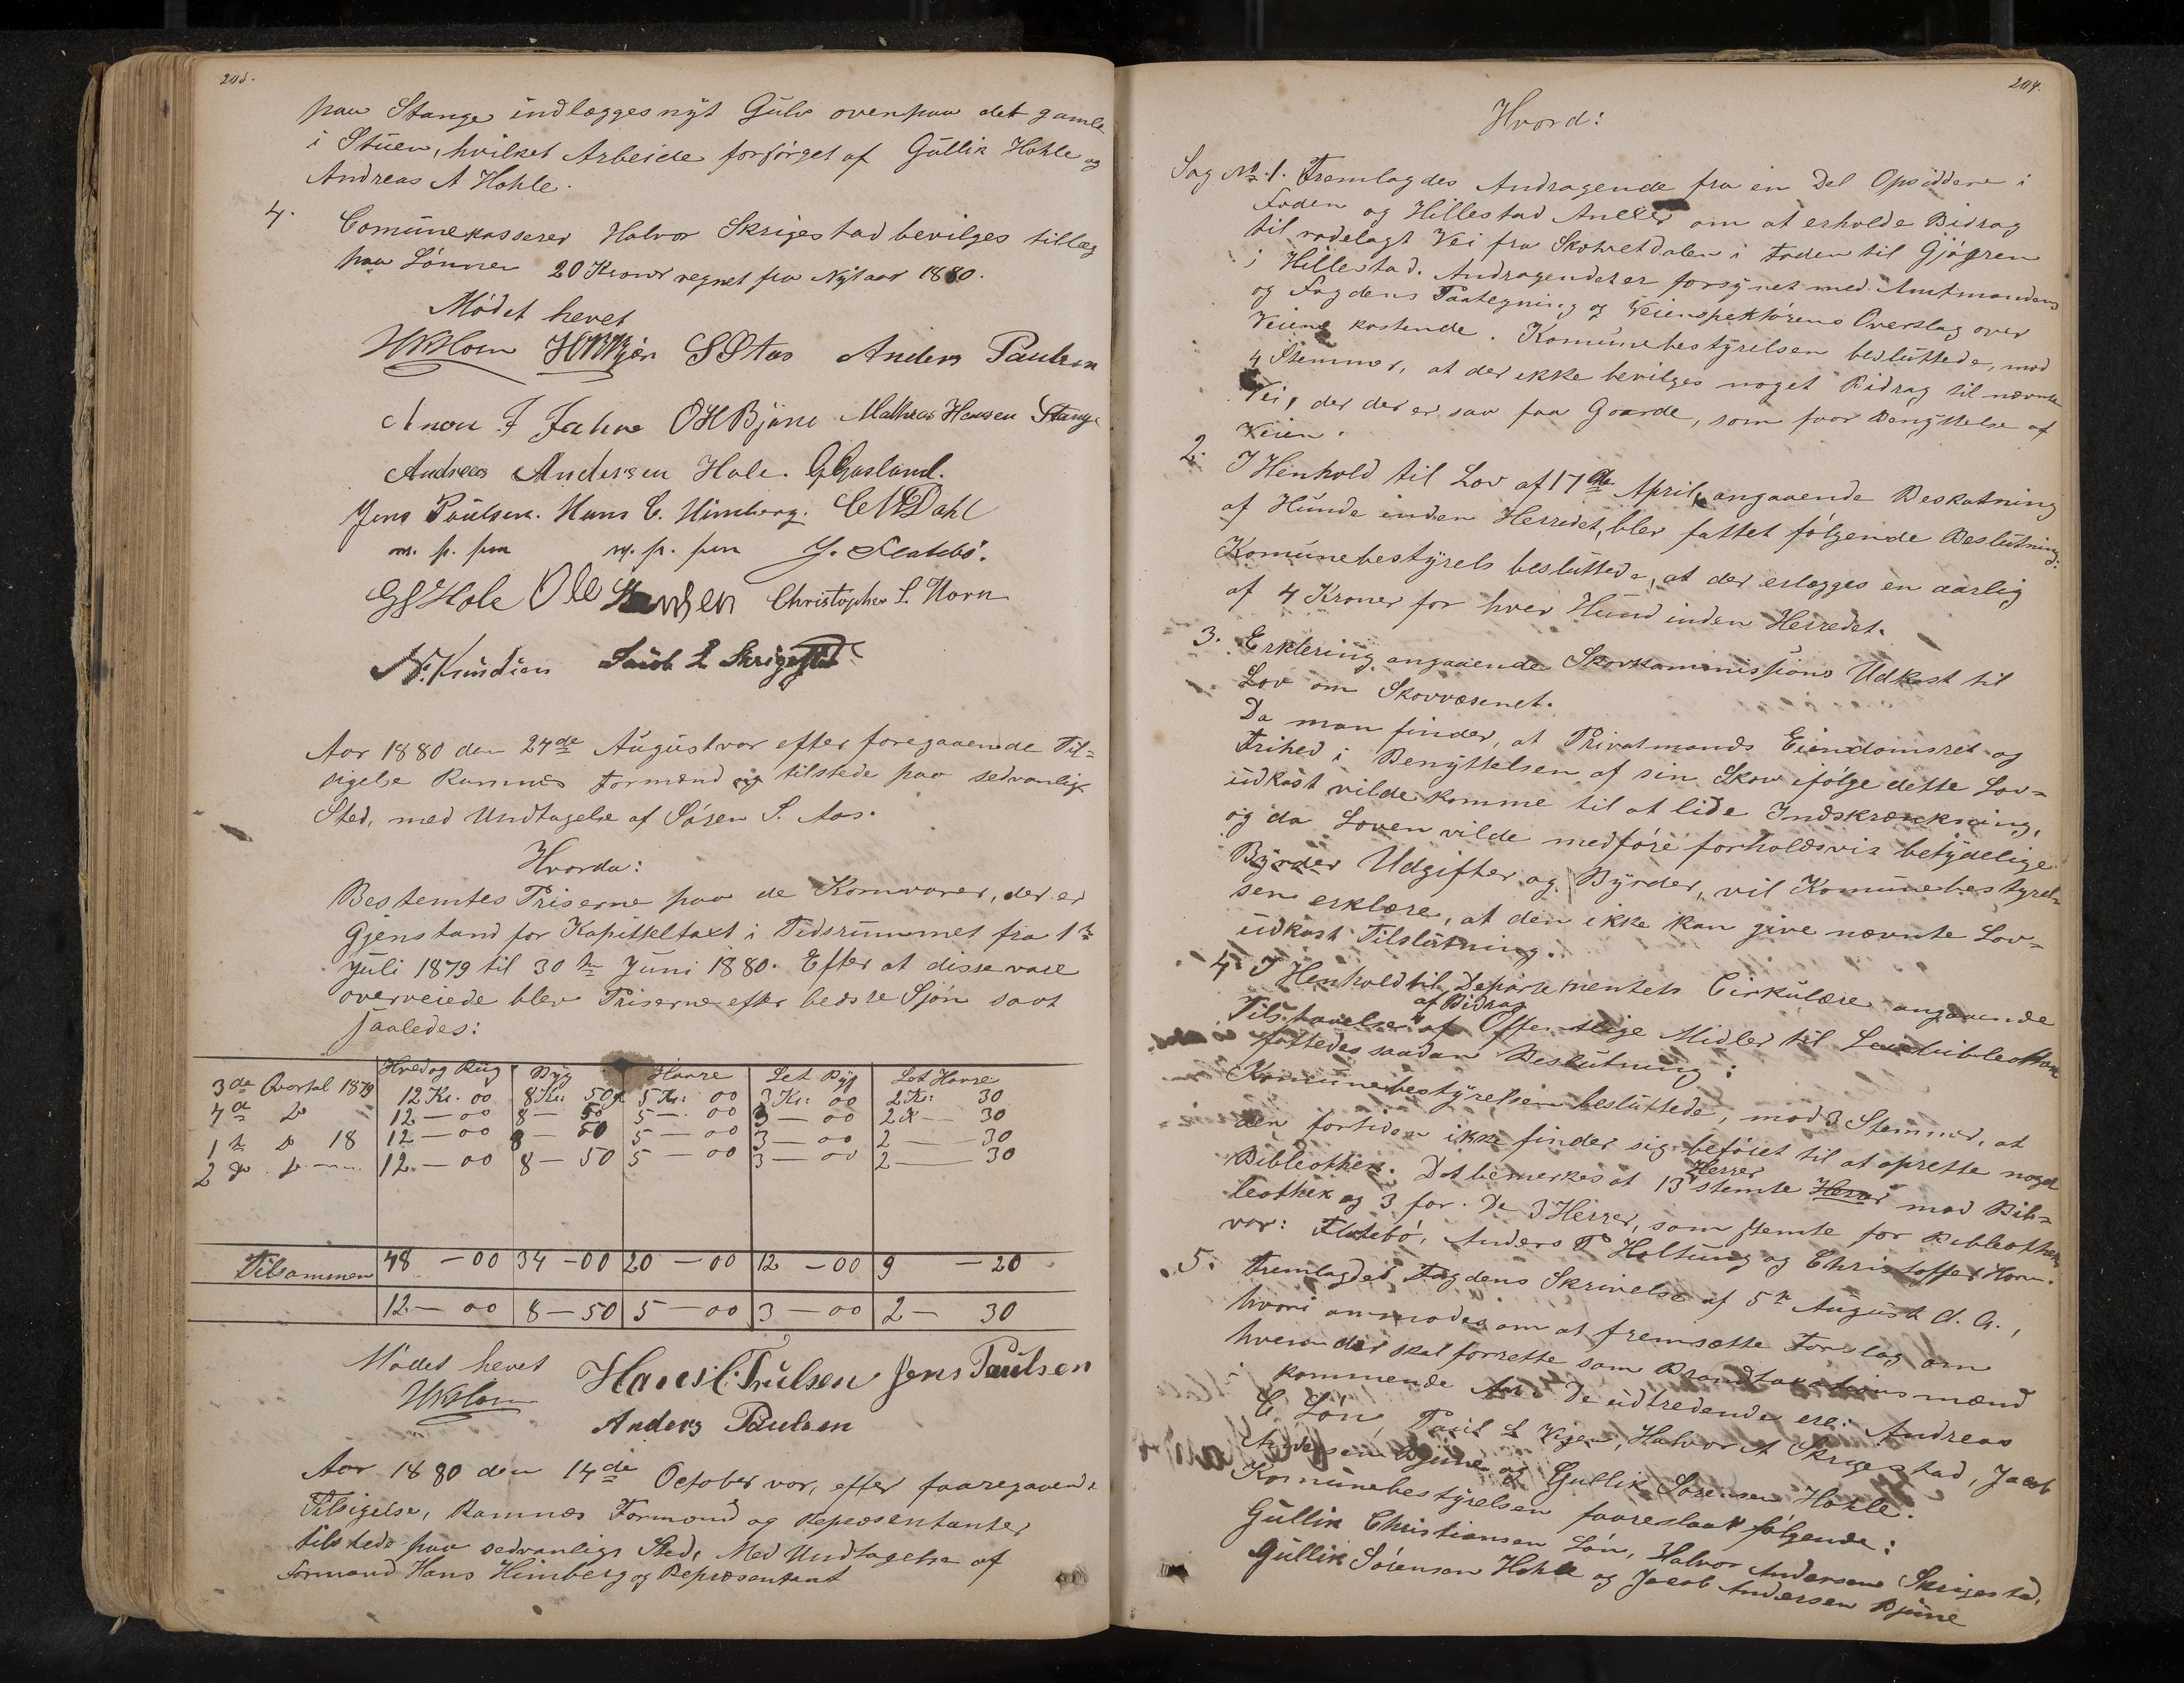 203.
paa Stange indlægges nyt Gulv ovenpaa det gamle
i Stuen, hvilket Arbeide forsørget af Gullik Hohle og
Andreas A Hohle.
4. Comunekasserer Halvor Skrigestad bevilges tillæg
paa Lønnen 20 Kroner regnet fra Nytaar 1880.
Mødet hevet
S S Aas Anders Paulsen
Anon J Jahre O H Bjüne Mathias Hansen Stange
Andreas Andersen Hole. G Gasland.
Jens Paulsen. Hans C. Himberg. Dahl
m. p. pen m. p. pen J. Flatebø.
G S Hole Ole Hansen Christopher L. Horn
N. Knudsen Jacob L Skrigestad
Aar 1880 den 24de August var efter foregaaende Til=
sigelse Ramnes Formænd og tilstede paa sedvanlige
Sted, med Undtagelse af Søren S. Aas.
Hvorda:
Bestemtes Priserne paa de Kornvarer, der er
Gjenstand for Kapitteltaxt i Tidsrummet fra 1te
Juli 1879 til 30te Juni 1880. Efter at disse vare
overveiede blev Priserne efter bedste Sjøn sadt
saaledes:
Hved og Rug Byg Havre Let Byg Let Havre
3de Qvartal 1879 12 Kr. 00 8 Kr: 50 5 Kr: 00 3 Kr: 00 2 Kr: 30
4de Do 12 — 00 8 — 50 5 — 00 3 — 00 2 — 30
1te Do 18 12 — 00 8 — 50 5 — 00 3 — 00 2 — 30
2de Do 12 — 00 8 — 50 5 — 00 3 — 00 2 — 30
Tilsammen 48 — 00 34 — 00 20 — 00 12 — 00 9 — 20
12 — 00 8 — 50 5 — 00 3 — 00 2 — 30
Mødet hevet Hans C. Trulsen Jens Paulsen
Anders Paulsen
Aar 1880 den 14de October var, efter faaregaaende
Tilsigelse, Ramnes Formænd og Repræsentanter
tilstede paa sedvanlige Sted, Med Undtagelse af
Formand Hans Himberg og Repræsentant
204.
Hvord:
Sag No. 1. Fremlagdes Andragende fra en Del Opsiddere i
Foden og Hillestad Anexer om at erholde Bidrag
til rodelagt Vei fra i Foden til Gjøgren
i Hillestad. Andragendet er forsynet med Amtmandens
og Fogdens Paategning og Veiinspektørens Overslag over
Veiens kostende. Komunebestyrelsen besluttede, mod
4 Stemmer, at der ikke bevilges noget Bidrag til nævnte
Vei, der der er saa faa Gaarde, som faar Benyttelse af
Veien.
2. I Henhold til Lov af 17de April, angaaende Beskatning
af Hunde inden Herredet, blev fattet følgende Beslutning:
Komunebestyrels besluttede, at der erlægges en aarlig
af 4 Kroner for hver Hund inden Herredet.
3. Erklering angaaende Skovkommissions Udkast til
Lov om Skovvæsenet.
Da man finder, at Privatmands Eiendomsret og
Frihed i Benyttelsen af sin Skov ifølge dette Lov=
udkast vilde komme til at lide Indskrænkning,
og da Loven vilde medføre forholdsvis betydelige
Byrder Udgifter og Byrder, vil Komunebestyrel=
sen erklære, at den ikke kan give nævnte Lov=
udkast Tilslutning.
4. I Henhold til Departementets Cirkulære angaaende
af Bidrag
Tilstaaelse af Offentlige Midler til
fattedes saadan Beslutning:
Komunebestyrelsen besluttede, mod 3 Stemmer, at
den fortiden ikke finder sig beføiet til at oprette noget
Herrer
Bibleothek. Det bemerkes at 13 stemte Herrer mod Bib=
leothek og 3 for. De 3 Herrer, som stemte for Bibleothek
var: Flatebø, Anders P Holtung og Christoffer Horn.
5. Fremlagdes Fogdens Skrivelse af 5te August d. A.,
hvori anmodes om at fremsætte Forslag om
hvem der skal forrette som Brandtaxationsmænd
i kommende Aar. De udtredende ere: Andreas
C Løn, Paul L Vegen, Halvor A Skrigestad, Jacob
Andersen Bjune og Gullik Sørensen Hohle.
Komunebestyrelsen faareslaar følgende:
Gullik Christiansen Løn, Halvor Andersen Skrigestad,
Gullik Sørensen Hohle og Jacob Andersen Bjune